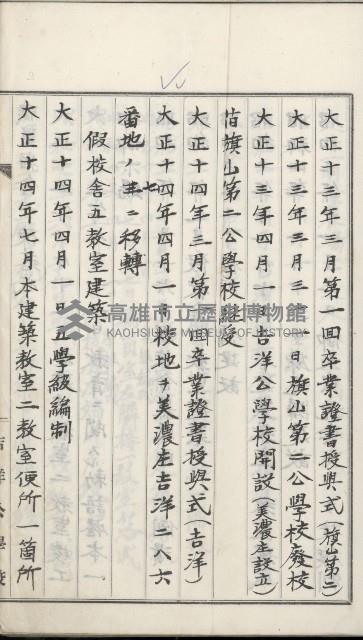 大正十三年三月第一回卒業證書授與式(旗山第二)
大正十三年三月三一日旗山第二公學校廢校
大正十三年四月一日吉洋公學校開設(美濃庄設立)
旗山第二公學校継受
大正十四年三月第一回卒業證書授與式(吉洋)
大正十四年四月一日校地ヲ美濃庄吉洋二八六
番地ノ七ニ移轉
假校舎五教室建築
大正十四年四月一日五學級編制
大正十四年七月本建築教室二教室便所一箇所
吉洋公學校
高雄市立歷史博物館
KAOHSIUNG MUSEUM OF HISTORY